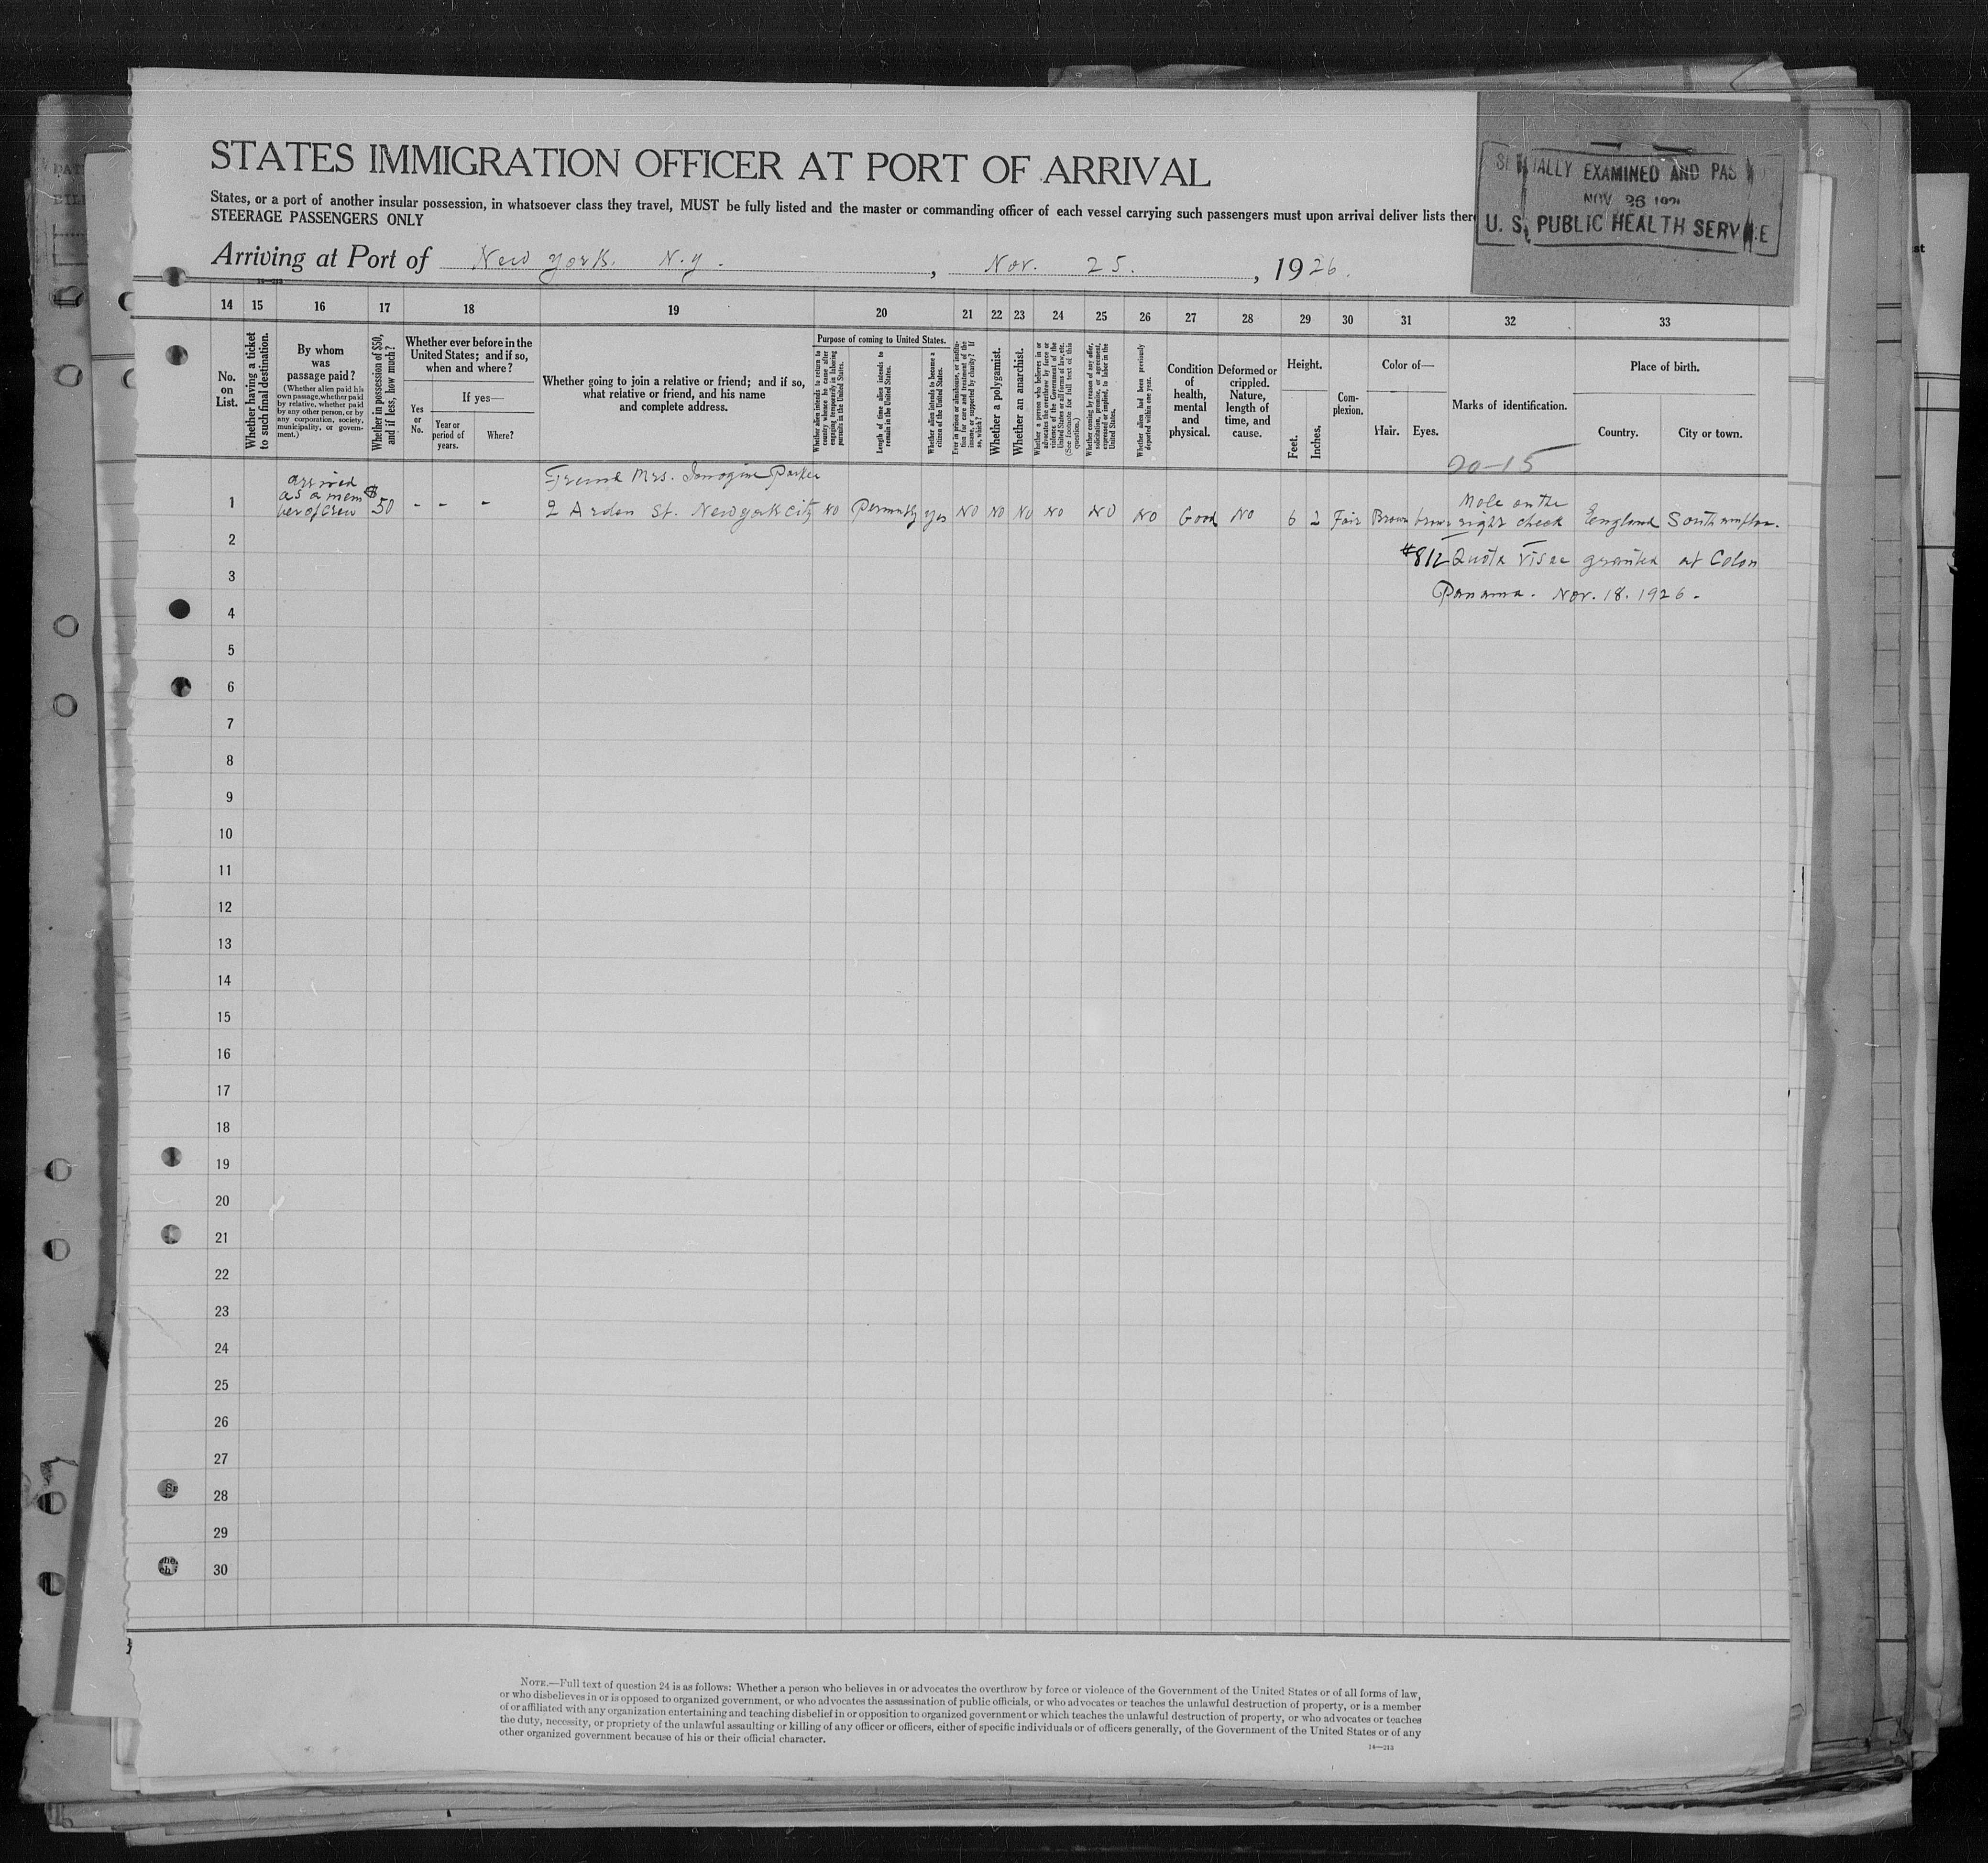 STATES IMMIGRATION OFFICER AT PORT OF ARRIVAL
States, or a port of another insular possession, in whatsoever class they travel, MUST be fully listed and the master or commanding officer of each vessel carrying such passengers must upon arrival deliver lists
STEERAGE PASSENGERS ONLY
EXAMINED AND
NOV 26
U. S. PUBLIC HEALTH
Arriving at Port of New York. N.y. , Nov. 25. , 1926.
14 15 16 17 18 19 20 21 22 23 24 25 26 27 28 29 30 31 32 33
No. on List.
Whether having a ticket to such final destination.
By whom was passage paid?
(Whether alien paid his own passage, whether paid by relative, whether paid by any other person, or by any corporation, society, municipality, or government.)
Whether in possession of $50, and if less, how much?
Whether ever before in the United States; and if so, when and where?
Yes or No.
If yes—
Year or period of years.
Where?
Whether going to join a relative or friend; and if so, what relative or friend, and his name and complete address.
Purpose of coming to United States.
Whether alien intends to return to country whence he came after engaging temporarily in laboring pursuits in the United States.
Length of time alien intends to remain in the United States.
Whether alien intends to become a citizen of the United States.
Ever in prison or almshouse, or institution for care and treatment of the insane, or supported by charity? If so, which?
Whether a polygamist.
Whether an anarchist.
Whether a person who believes in or advocates the overthrow by force or violence of the Government of the United States or all forms of law, etc. (See footnote for full text of this question.)
Whether coming by reason of any offer, solicitation, promise, or agreement, expressed or implied, to labor in the United States.
Whether alien had been previously deported within one year.
Condition of health, mental and physical.
Deformed or crippled. Nature, length of time, and cause.
Height.
Feet.
Inches.
Complexion.
Color of—
Hair.
Eyes.
Marks of identification.
Place of birth.
Country.
City or town.
20-15
arrived
as a mem
ber of crew
Friend Mrs. Parker
1 $50 - - - 2 Arden St. New york City No Permntly yes No No No No No No Good No 6 2 Fair Brown brown Mole on the right cheek England Southampton.
2 #812 Quota Visae granted at Colon
3 Panama. Nov. 18. 1926.
4
5
6
7
8
9
10
11
12
13
14
15
16
17
18
19
20
21
22
23
24
25
26
27
28
29
30
NOTE.—Full text of question 24 is as follows: Whether a person who believes in or advocates the overthrow by force or violence of the Government of the United States or of all forms of law,
or who disbelieves in or is opposed to organized government, or who advocates the assassination of public officials, or who advocates or teaches the unlawful destruction of property, or is a member
of or affiliated with any organization entertaining and teaching disbelief in or opposition to organized government or which teaches the unlawful destruction of property, or who advocates or teaches
the duty, necessity, or propriety of the unlawful assaulting or killing of any officer or officers, either of specific individuals or of officers generally, of the Government of the United States or of any
other organized government because of his or their official character.
14—213